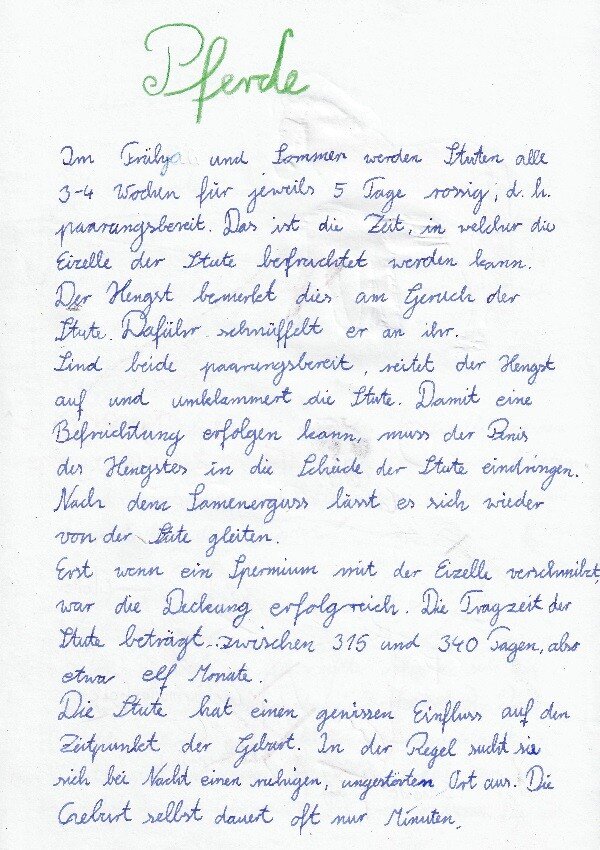 Pferde
Im Frühja und Sommer werden Stuten alle
3-4 Wochen für jeweils 5 Tage rossig, d. h.
paarungsbereit. Das ist die Zeit, in welcher die
Eizelle der Stute befruchtet werden kann.
Der Hengst bemerkt dies am Geruch der
Stute. Daführ schnüffelt er an ihr.
Sind beide paarungsbereit, reitet der Hengst
auf und umklammert die Stute. Damit eine
Befruchtung erfolgen kann, muss der Penis
des Hengstes in die Scheide der Stute eindringen.
Nach dem Samenerguss lässt es sich wieder
von der Stute gleiten.
Erst wenn ein Spermium mit der Eizelle verschmilzt,
war die Deckung erfolgreich. Die Tragzeit der
Stute beträgt zwischen 315 und 340 Tagen, also
etwa elf Monate.
Die Stute hat einen gewissen Einfluss auf den
Zeitpunkt der Geburt. In der Regel sucht sie
sich bei Nacht einen ruhigen, ungestörten Ort aus. Die
Geburt selbst dauert oft nur Minuten.